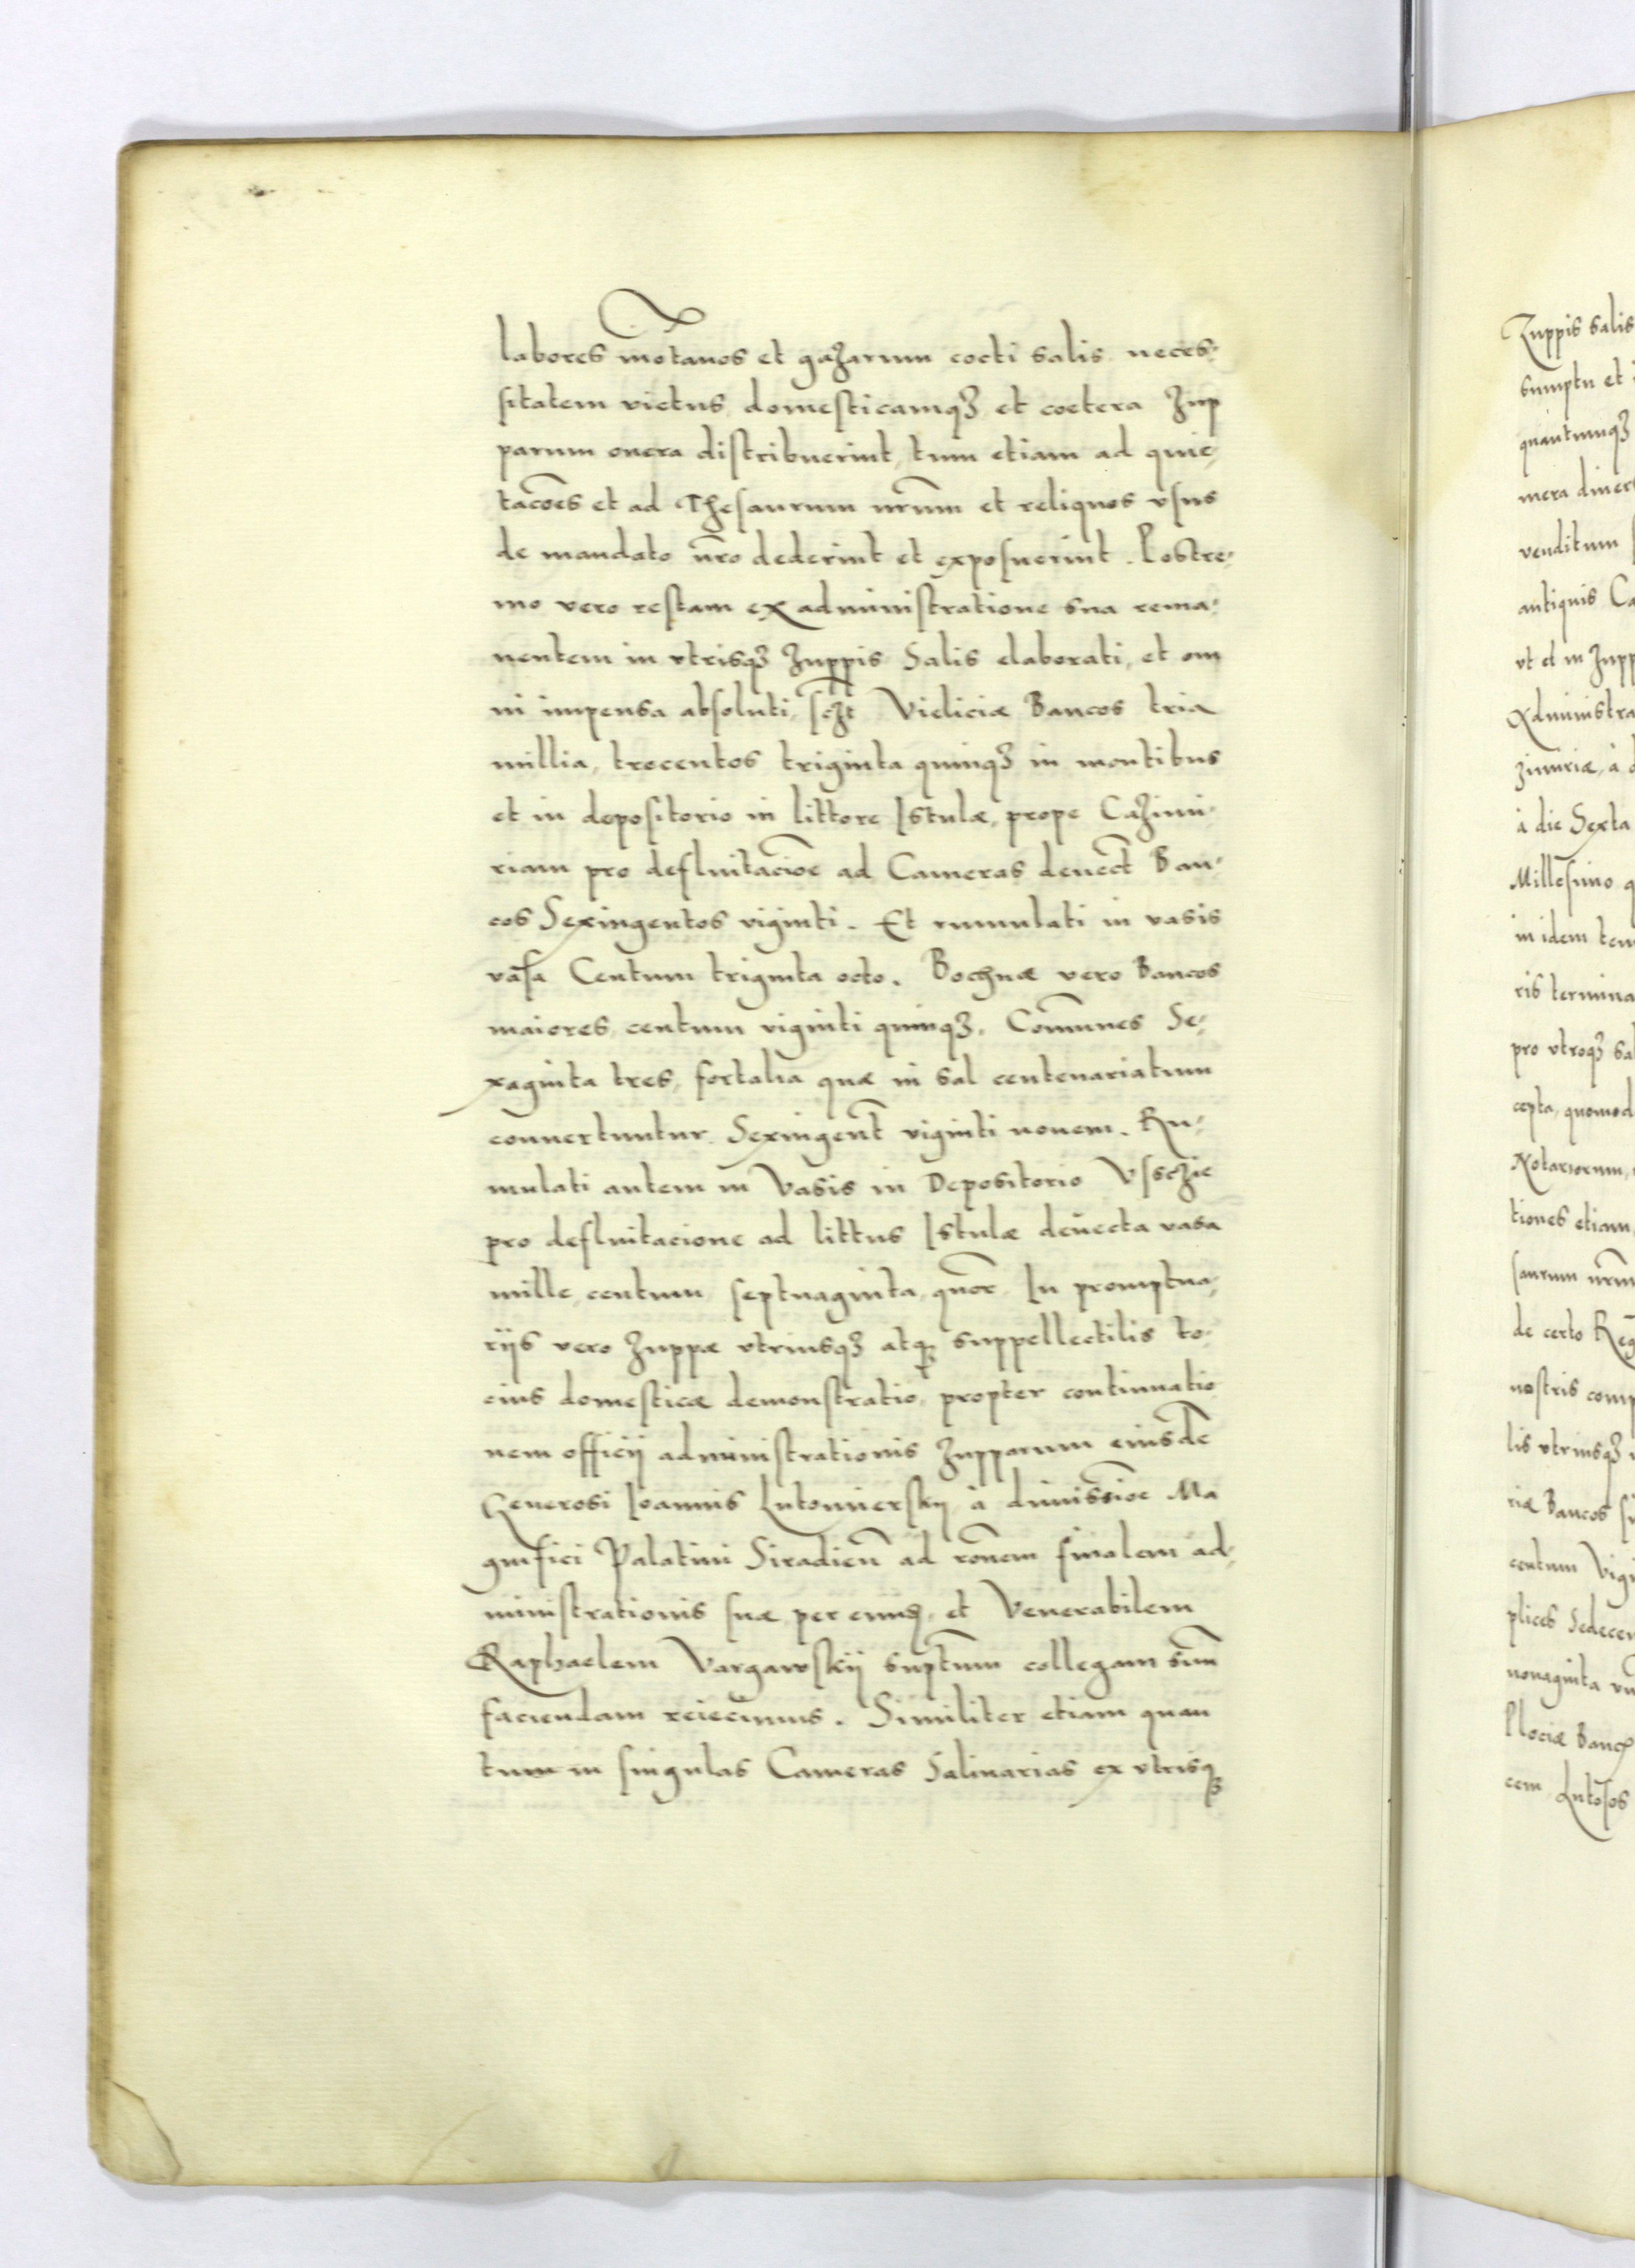 labores mōtanos et gazarum cocti salis neces-
sitatem victus domesticamqȝ et coetera Zup
parum onera distribuerint, tum etiam ad quie,
tacōes et ad Thesaurum nr̄um et reliquos vsus
de mandato nr̄o dederint et exposuerint. Postre-
mo vero restam ex administratione sua rema-
nentem in vtrisqȝ Zuppis Salis elaborati, et om
ni impensa absoluti, sczt Vieliciæ Bancos tria
millia, trecentos triginta quinqȝ in montibus
et in depositorio in littore Istulæ, prope Cazimi-
riam pro defluitaciōe ad Cameras deuect̄ Ban-
cos Sexingentos viginti. Et rumulati in vasis
vasa Centum triginta octo. Bochnæ vero Bancos
maiores centum viginti quinqȝ, Com̄unes Se-
xaginta tres, fortalia quæ in sal centenariatum
conuertuntur Sexingent̄ viginti nouem. Ru-
mulati autem in Vasis in Depositorio Vssczie
pro defluitacione ad littus Istulæ deuecta vasa
mille, centum septuaginta quōr In promptua,
rijs vero Zuppæ vtriusqȝ atqȝ suppellectilis to-
cius domesticæ demonstratio, propter continuatio
nem officij administrationis Zupparum eiusdē
Generosi Ioannis Lutomiersky à dimissiōe Ma
gnifici Palatini Siradien̄ ad rōnem finalem ad-
ministrationis suæ per eum et Venerabilem
Raphaelem Vargawskij supt̄um collegam suū
faciendam reiecimus. Similiter etiam quan
tum in singulas Cameras Salinarias ex vtrisqȝ
Zuppis salis
sumptu et
quantumqȝ
mera diuers
venditum
antiquis Ca
vt et in Zupp
Administra
zimiriæ, à d
à die Sexta
Millesimo q
in idem tem
ris termina
pro vtroqȝ sal
cepta, quomod
Notariorum,
tiones etiam,
saurum nr̄um
de certo Reg
nostris comp
lis vtriusqȝ
riæ Bancos
centum Vigi
plices Sedecem
nonaginta
Plociæ Banc
cem Lutosos